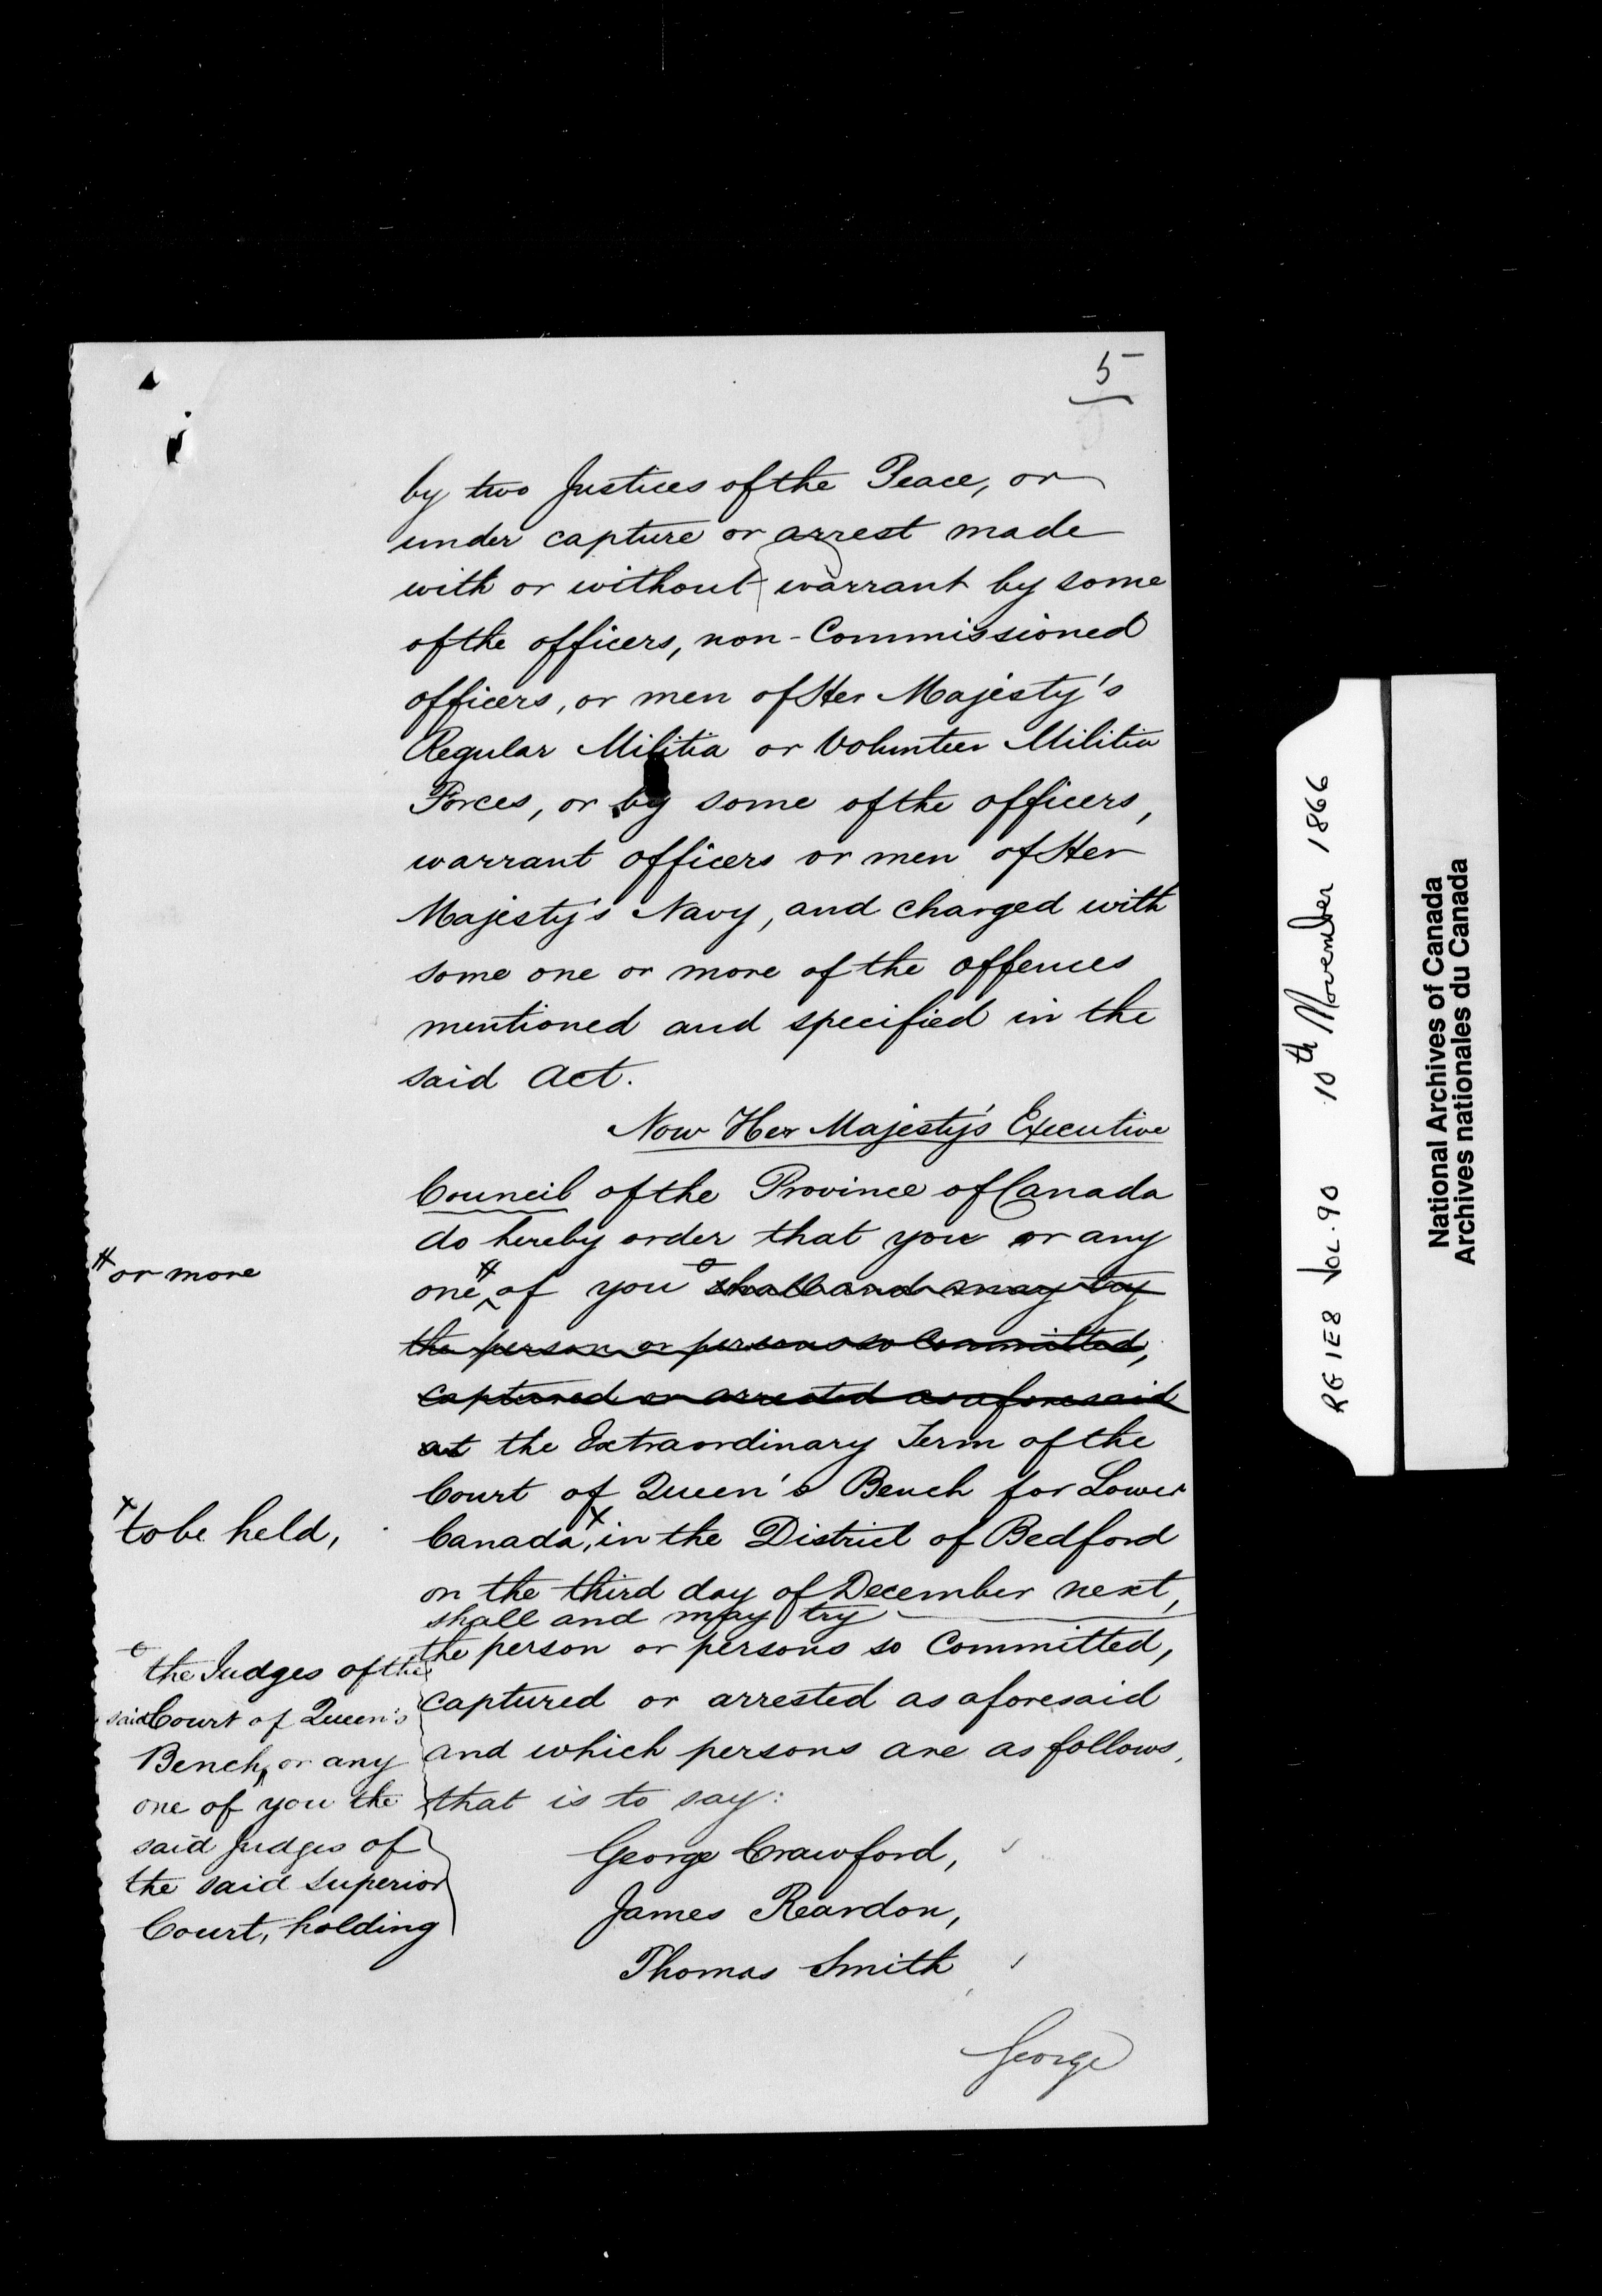 5
by two Justices of the Peace, or
under capture or arrest made
with or without warrant by some
of the officers, non-Commissioned
officers, or men of Her Majesty's
Regular Militia or Volunteer Militia
Forces, or by some of the officers,
warrant officers or men of Her
Majesty's Navy, and charged with
some one or more of the offences
mentioned and specified in the
said Act.
Now Her Majesty's Executive
Council of the Province of Canada
do hereby order that you or any
# or more
one # of you o shall and may try
the person or persons so Committed,
captured or arrested as aforesaid
at the Extraordinary Term of the
Court of Queen's Bench for Lower
x to be held,
Canada, x in the District of Bedford
on the third day of December next,
shall and may try
the person or persons so Committed,
captured or arrested as aforesaid
and which persons are as follows,
that is to say:
o the Judges of the
said Court of Queen's
Bench, or any
one of you the
said Judges of
the said Superior
Court, holding
George Crawford,
James Reardon,
Thomas Smith
George
RG 1E8 VOL. 90 10th November 1866
National Archives of Canada
Archives nationales du Canada